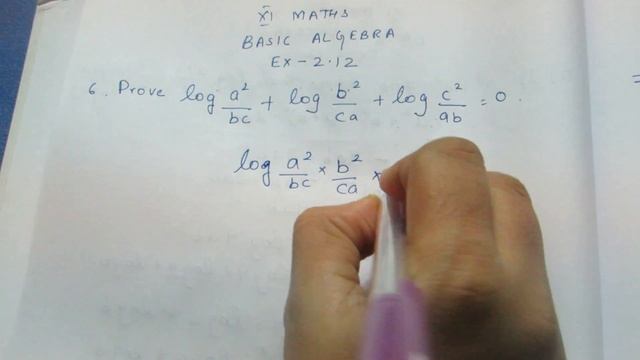 XI MATHS
BASIC ALGEBRA
EX - 2.12
6. Prove log a²/bc + log b²/ca + log c²/ab = 0.
log a²/bc × b²/ca ×
=